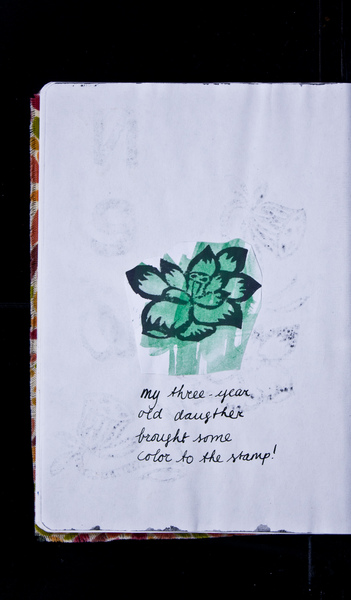 my three-year
old daugther
brought some
color to the stamp!